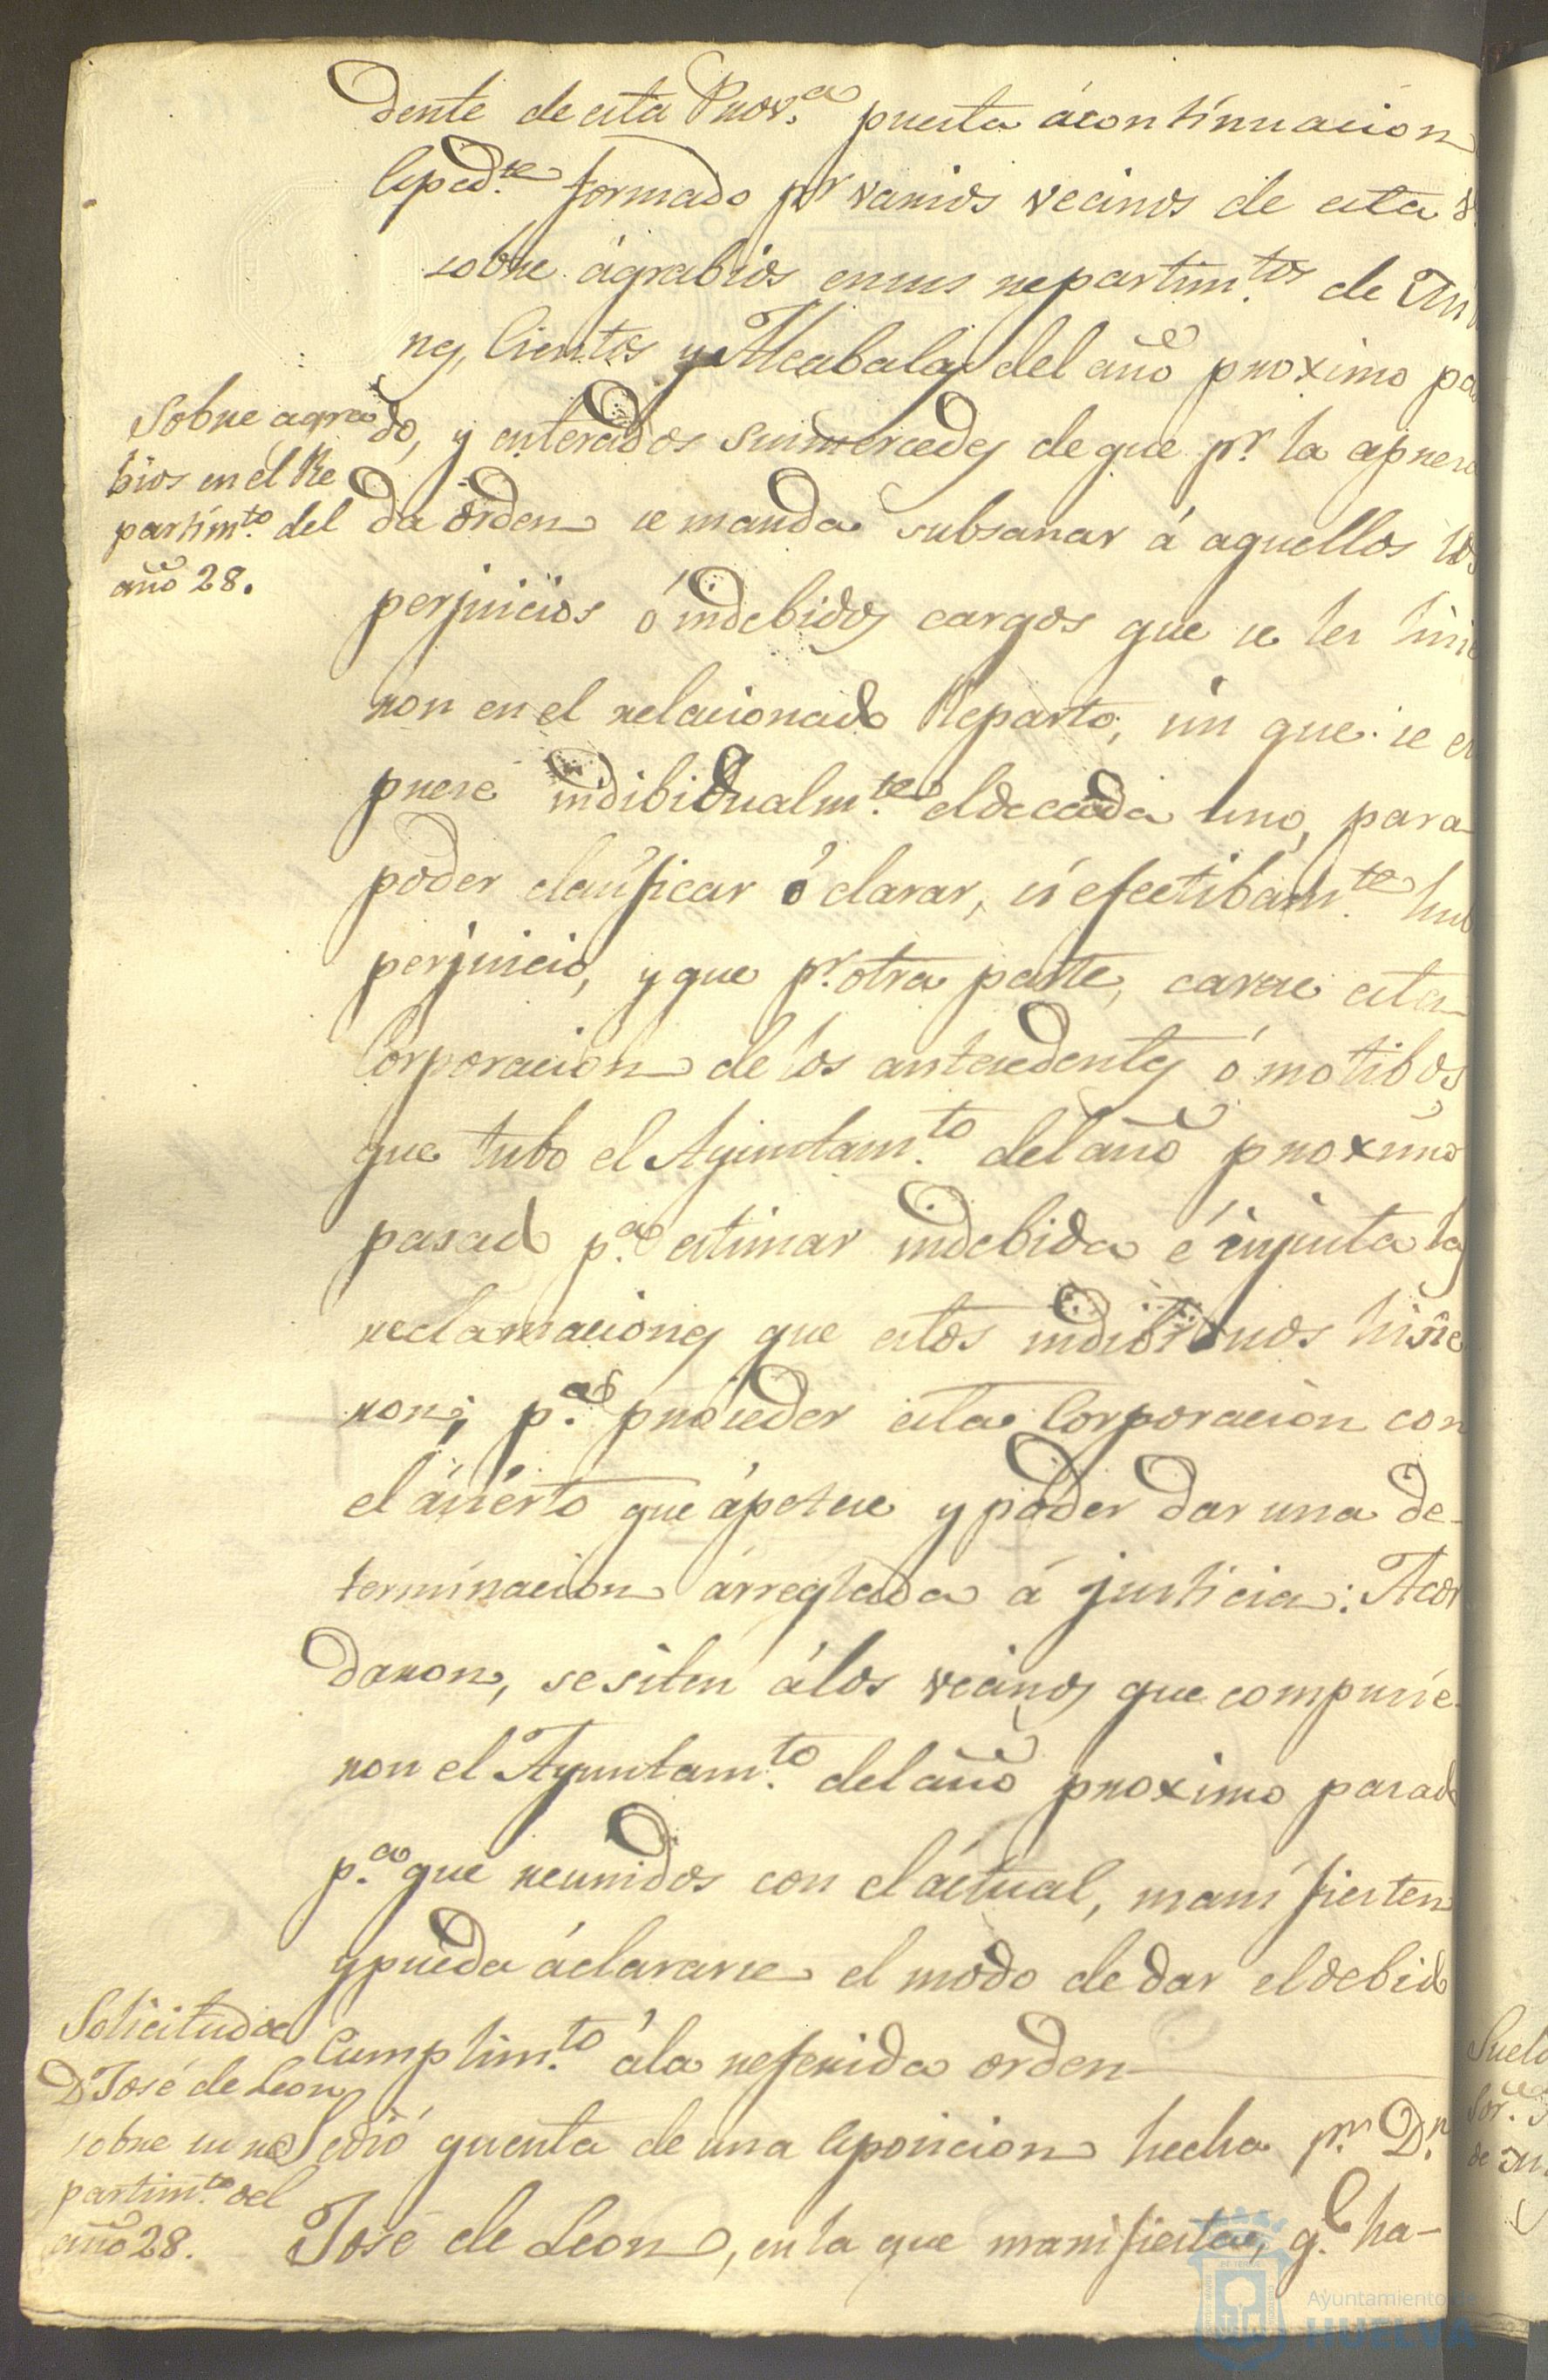 dente de esta Prov.ª puesta á continuacion
Esped.te formado p.r varios vecinos de esta V.
sobre ágrabios en sus repartim.tos de Mi
nes, Cientos y Alcabalas del año proximo pa
Sobre agra
bios en el Re
partim.to del
año 28.
do, y enterados sus mercedes de que p.r la apresa
da órden se manda subsanar á aquellos los
perjuicios ó indebidos cargos que se les hicie
ron en el relacionado Reparto, sin que se es
prese indibidualm.te el de cada uno, para
poder clasificar ó clarar, si efectibam.te hub
perjuicio, y que p.r otra parte, carece esta
Corporacion de los antecedentes ó motibos
que tubo el Ayuntam.to del año proximo
pasado p.ª estimar indebida é injusta las
reclamaciones que estos indibiduos hisie
ron; p.ª proceder esta Corporacion con
el ácierto que ápetece y poder dar una de-
terminacion árreglada á justicia: Acor
daron, se siten á los vecinos que compusie-
ron el Ayuntam.to del año proximo pasado
p.ª que reunidos con el áctual, manifiesten
y pueda áclararse el modo de dar el debido
Cumplim.to á la referida orden
Solicitud de
D José de Leon
sobre su re
partim.to del
año 28.
Se dió quenta de una esposicion hecha p.r D.n
José de Leon, en la que manifiesta, q.e ha-
Sueld
Sor.es
de
Ayuntamiento de
HUELVA